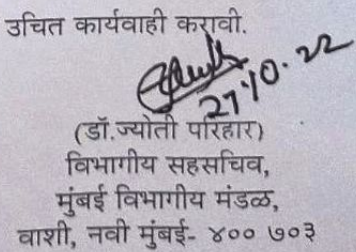 उचित कार्यवाही करावी.
27.10.22
(डॉ.ज्योती परिहार)
विभागीय सहसचिव,
मुंबई विभागीय मंडळ,
वाशी, नवी मुंबई- ४०० ७०३